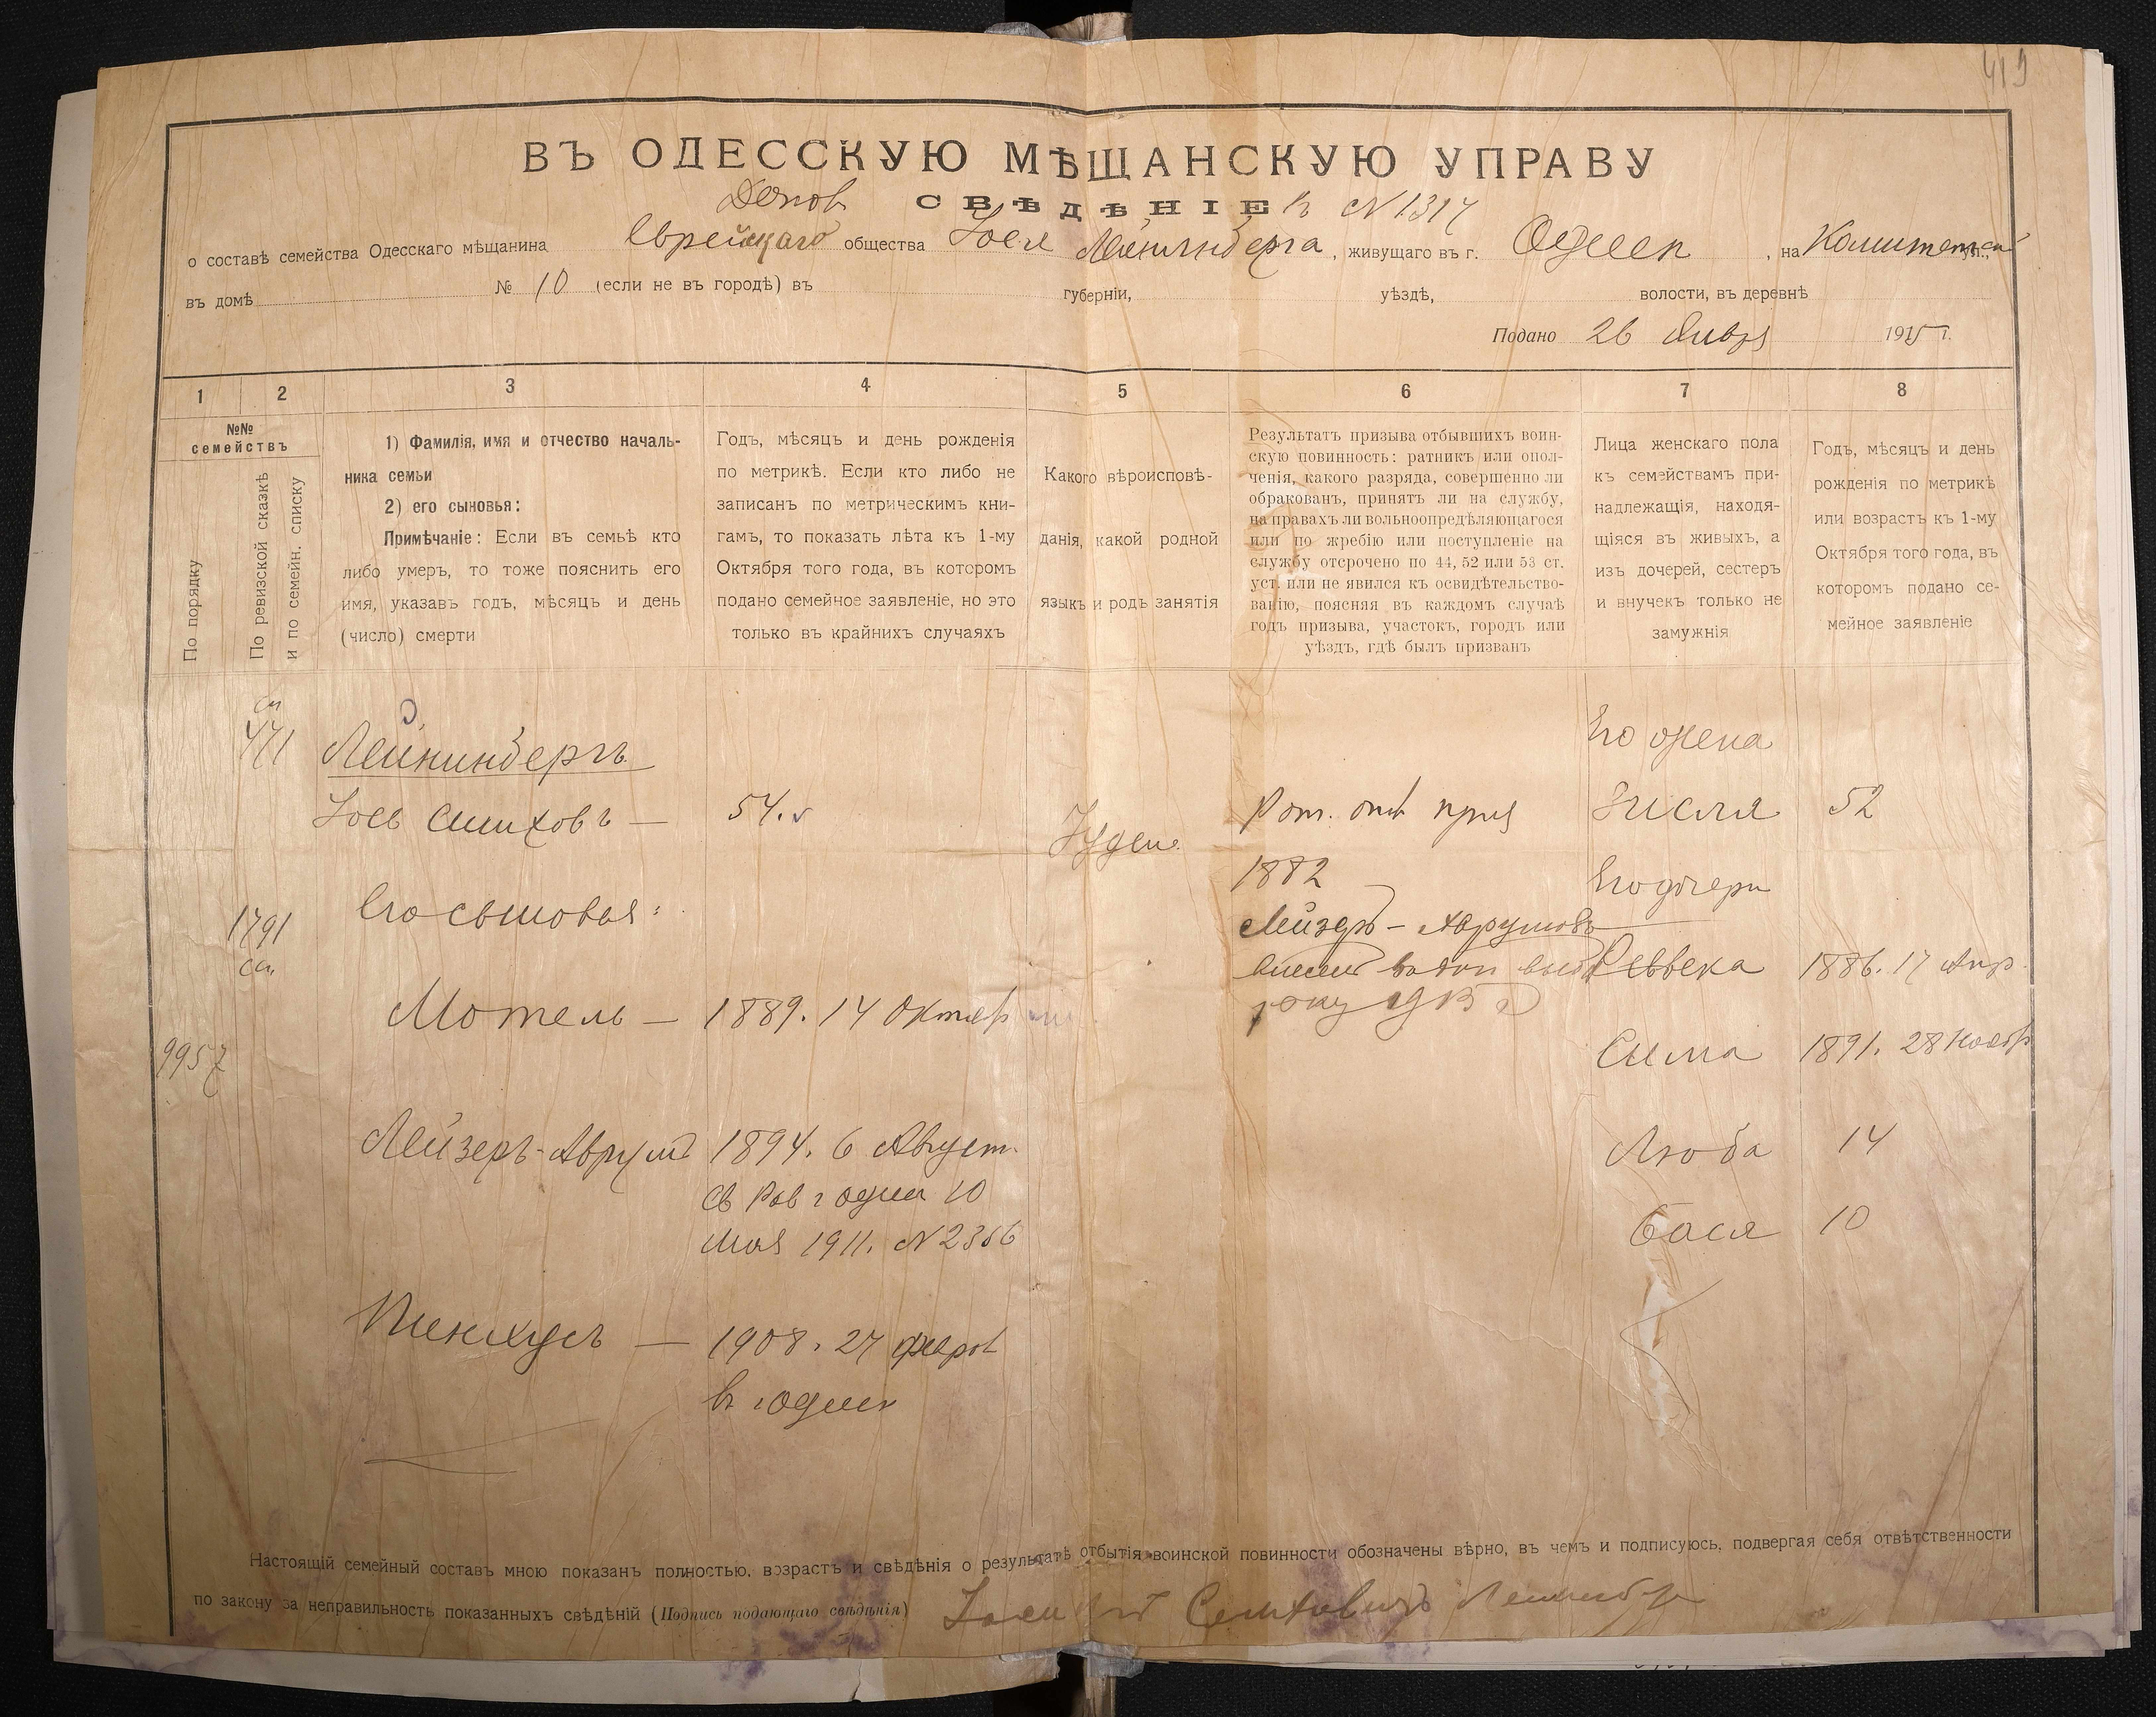 419
ВЪ ОДЕССКУЮ МѢЩАНСКУЮ УПРАВУ
СВѢДѢНІЕ № 1317
о составѣ семейства Одесскаго мѣщанина Еврейскаго общества Іосл Лейнинберга, живущаго въ г. Одессѣ, на Комитетской ул.,
въ домѣ № 10 (если не въ городѣ) въ губерніи, уѣздѣ, волости, въ деревнѣ
Подано 26 Январ 1915 г.
1 2 3 4 5 6 7 8
№№ семействъ
По порядку
По ревизской сказкѣ
и по семейн. списку
1) Фамилія, имя и отчество началь-
ника семьи
2) его сыновья:
Примѣчаніе: Если въ семьѣ кто
либо умеръ, то тоже пояснить его
имя, указавъ годъ, мѣсяцъ и день
(число) смерти
Годъ, мѣсяцъ и день рожденія
по метрикѣ. Если кто либо не
записанъ по метрическимъ кни-
гамъ, то показать лѣта къ 1-му
Октября того года, въ которомъ
подано семейное заявленіе, но это
только въ крайнихъ случаяхъ
Какого вѣроисповѣ-
данія, какой родной
языкъ и родъ занятія
Результатъ призыва отбывшихъ воин-
скую повинность: ратникъ или опол-
ченія, какого разряда, совершенно ли
обракованъ, принятъ ли на службу,
на правахъ ли вольноопредѣляющагося
или по жребію или поступленіе на
службу отсрочено по 44, 52 или 53 ст.
уст. или не явился къ освидѣтельство-
ванію, поясняя въ каждомъ случаѣ
годъ призыва, участокъ, городъ или
уѣздъ, гдѣ былъ призванъ
Лица женскаго пола
къ семействамъ при-
надлежащія, находя-
щіяся въ живыхъ, а
изъ дочерей, сестеръ
и внучекъ только не
замужнія
Годъ, мѣсяцъ и день
рожденія по метрикѣ
или возрастъ къ 1-му
Октября того года, въ
которомъ подано се-
мейное заявленіе
471 Лейнинбергъ Его жена
54. Іудей. Зисля 52
1882 Его дочери
1791 Его сыновья: Лейзеръ-Аврумъ
Реввека 1886. 17 Апр.
Мотель — 1889. 14 Октяб
9957 Сима 1891. 28 Нояб
Лейзеръ-Аврумъ 1894. 6 Август. Люба 14
10
Мая 1911. № 2366 Бася 10
Пинхусъ — 1908. 27 Феврал
въ Одессѣ
Настоящій семейный составъ мною показанъ полностью, возрастъ и свѣдѣнія о результатѣ отбытія воинской повинности обозначены вѣрно, въ чемъ и подписуюсь, подвергая себя отвѣтственности
по закону за неправильность показанныхъ свѣдѣній (Подпись подающаго свѣдѣнія)